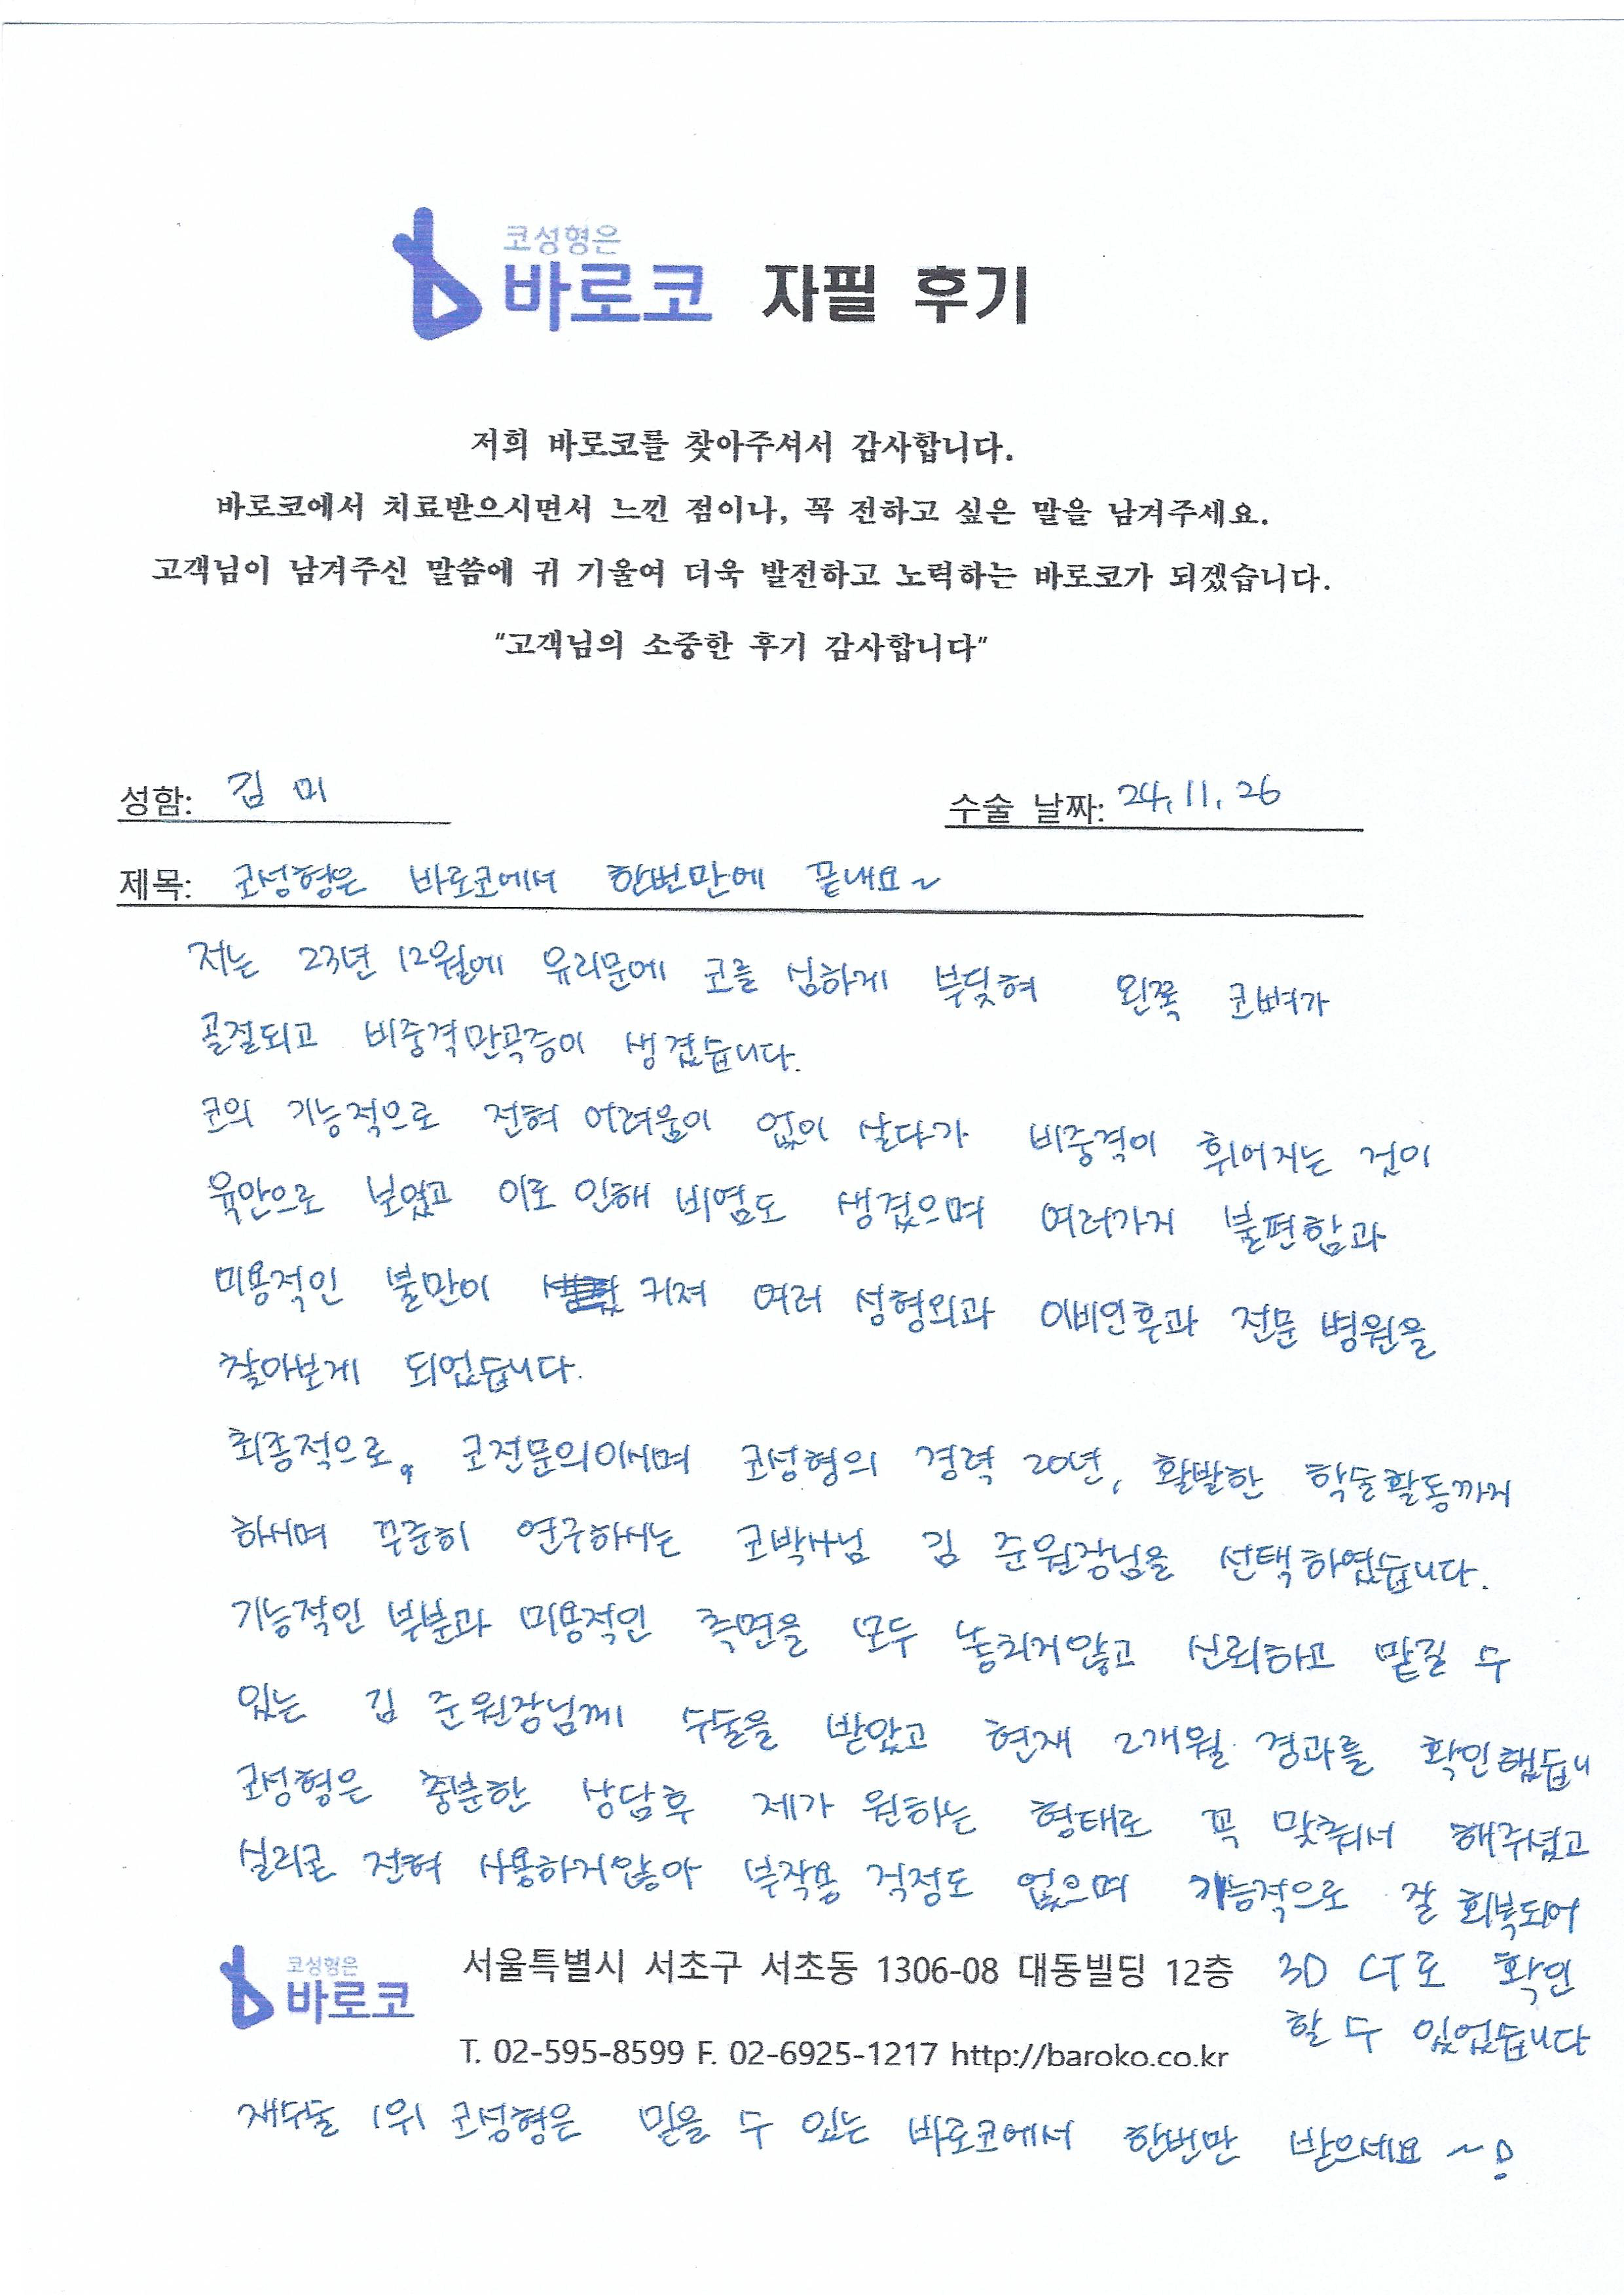 코성형은
바로코 자필 후기
저희 바로코를 찾아주셔서 감사합니다.
바로코에서 치료받으시면서 느낀 점이나, 꼭 전하고 싶은 말을 남겨주세요.
고객님이 남겨주신 말씀에 귀 기울여 더욱 발전하고 노력하는 바로코가 되겠습니다.
"고객님의 소중한 후기 감사합니다"
성함: 김 미 수술 날짜: 24. 11. 26
제목: 코성형은 바로코에서 한번만에 끝내요~
저는 23년 12월에 유리문에 코를 심하게 부딪혀 왼쪽 코뼈가
골절되고 비중격만곡증이 생겼습니다.
코의 기능적으로 전혀 어려움이 없이 살다가 비중격이 휘어지는 것이
육안으로 보였고 이로 인해 비염도 생겼으며 여러가지 불편함과
미용적인 불만이 커져 여러 성형외과 이비인후과 전문 병원을
찾아보게 되었습니다.
최종적으로, 코전문의이시며 코성형의 경력 20년, 활발한 학술활동까지
하시며 꾸준히 연구하시는 코박사님 김 준원장님을 선택하였습니다.
기능적인 부분과 미용적인 측면을 모두 놓치지않고 신뢰하고 맡길 수
있는 김 준원장님께 수술을 받았고 현재 2개월 경과를 확인했습니
코성형은 충분한 상담후 제가 원하는 형태로 꼭 맞춰서 해주셨고
실리콘 전혀 사용하지않아 부작용 걱정도 없으며 기능적으로 잘 회복되어
3D CT로 확인
할 수 있었습니다
코성형은
바로코
서울특별시 서초구 서초동 1306-08 대동빌딩 12층
T. 02-595-8599 F. 02-6925-1217 http://baroko.co.kr
재수술 1위 코성형은 믿을 수 있는 바로코에서 한번만 받으세요~!